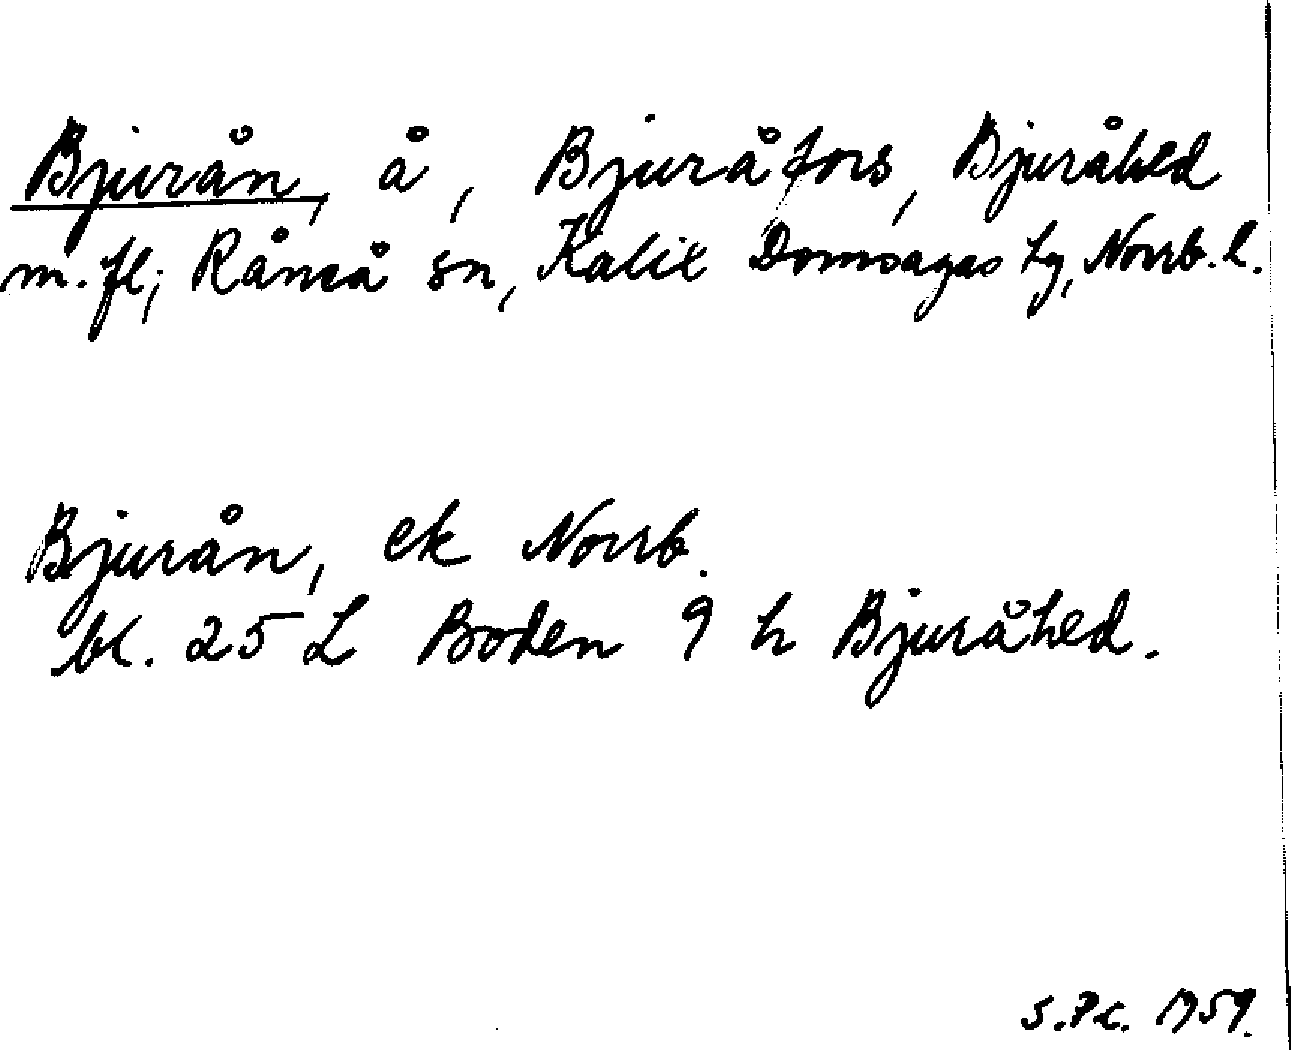 Bjurån, å, Bjuråfors, Bjuråhed
m. fl; Råneå sn, Kalix Domsagas tg, Norrb. l.
Bjurån, ek Norrb.
bl. 25 L Boden 9 h Bjuråhed.
S.P.C. 1959.